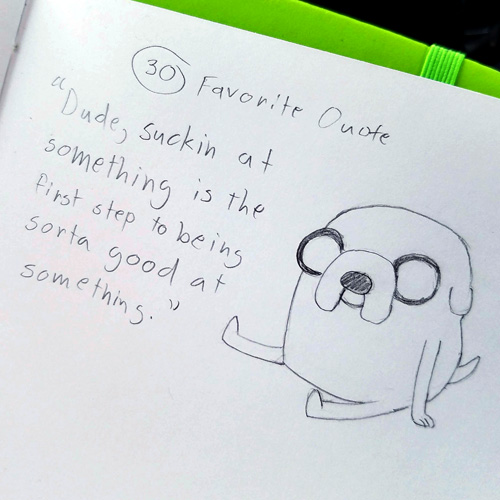 30 Favorite Quote
"Dude, suckin at
something is the
first step to being
sorta good at
something."